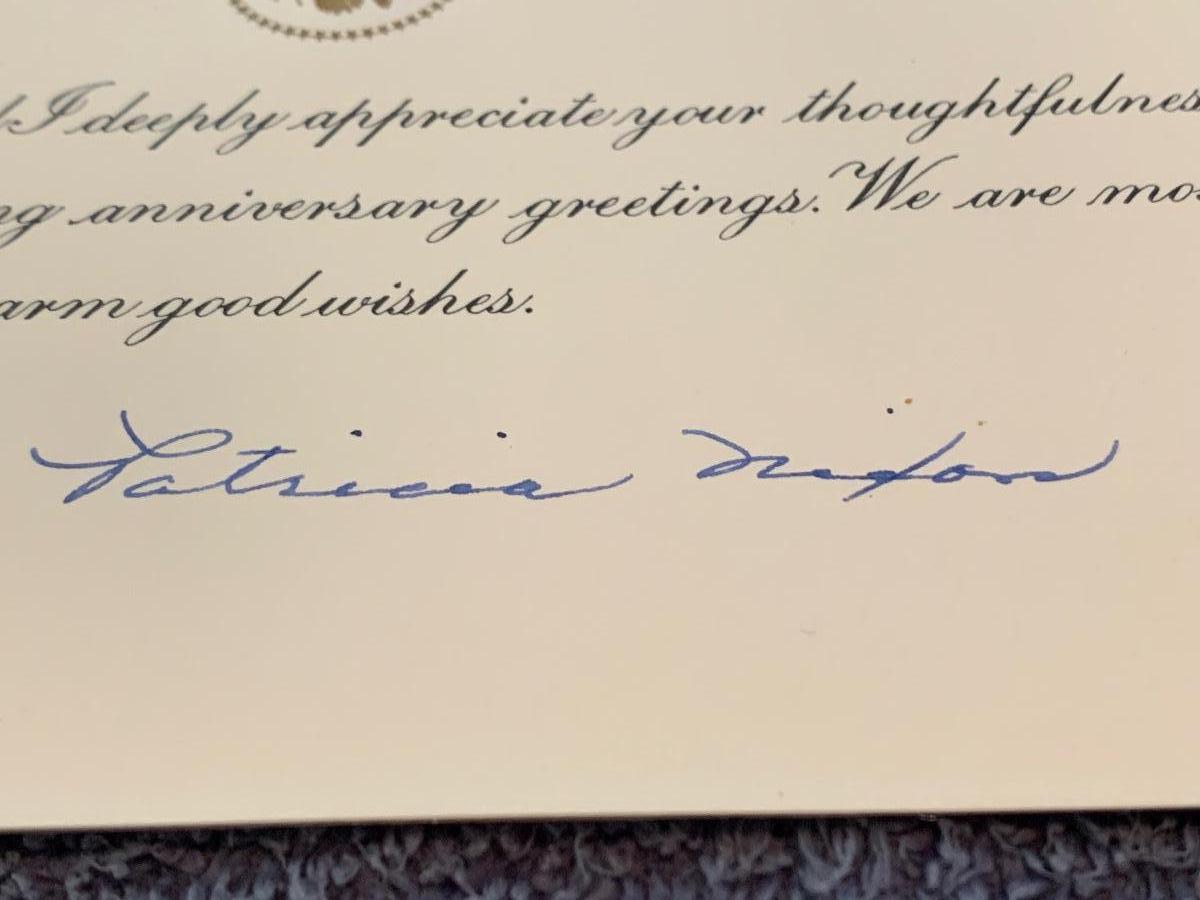 I deeply appreciate your thoughtfulnes
ng anniversary greetings. We are mo
arm good wishes.
Patricia Nixon